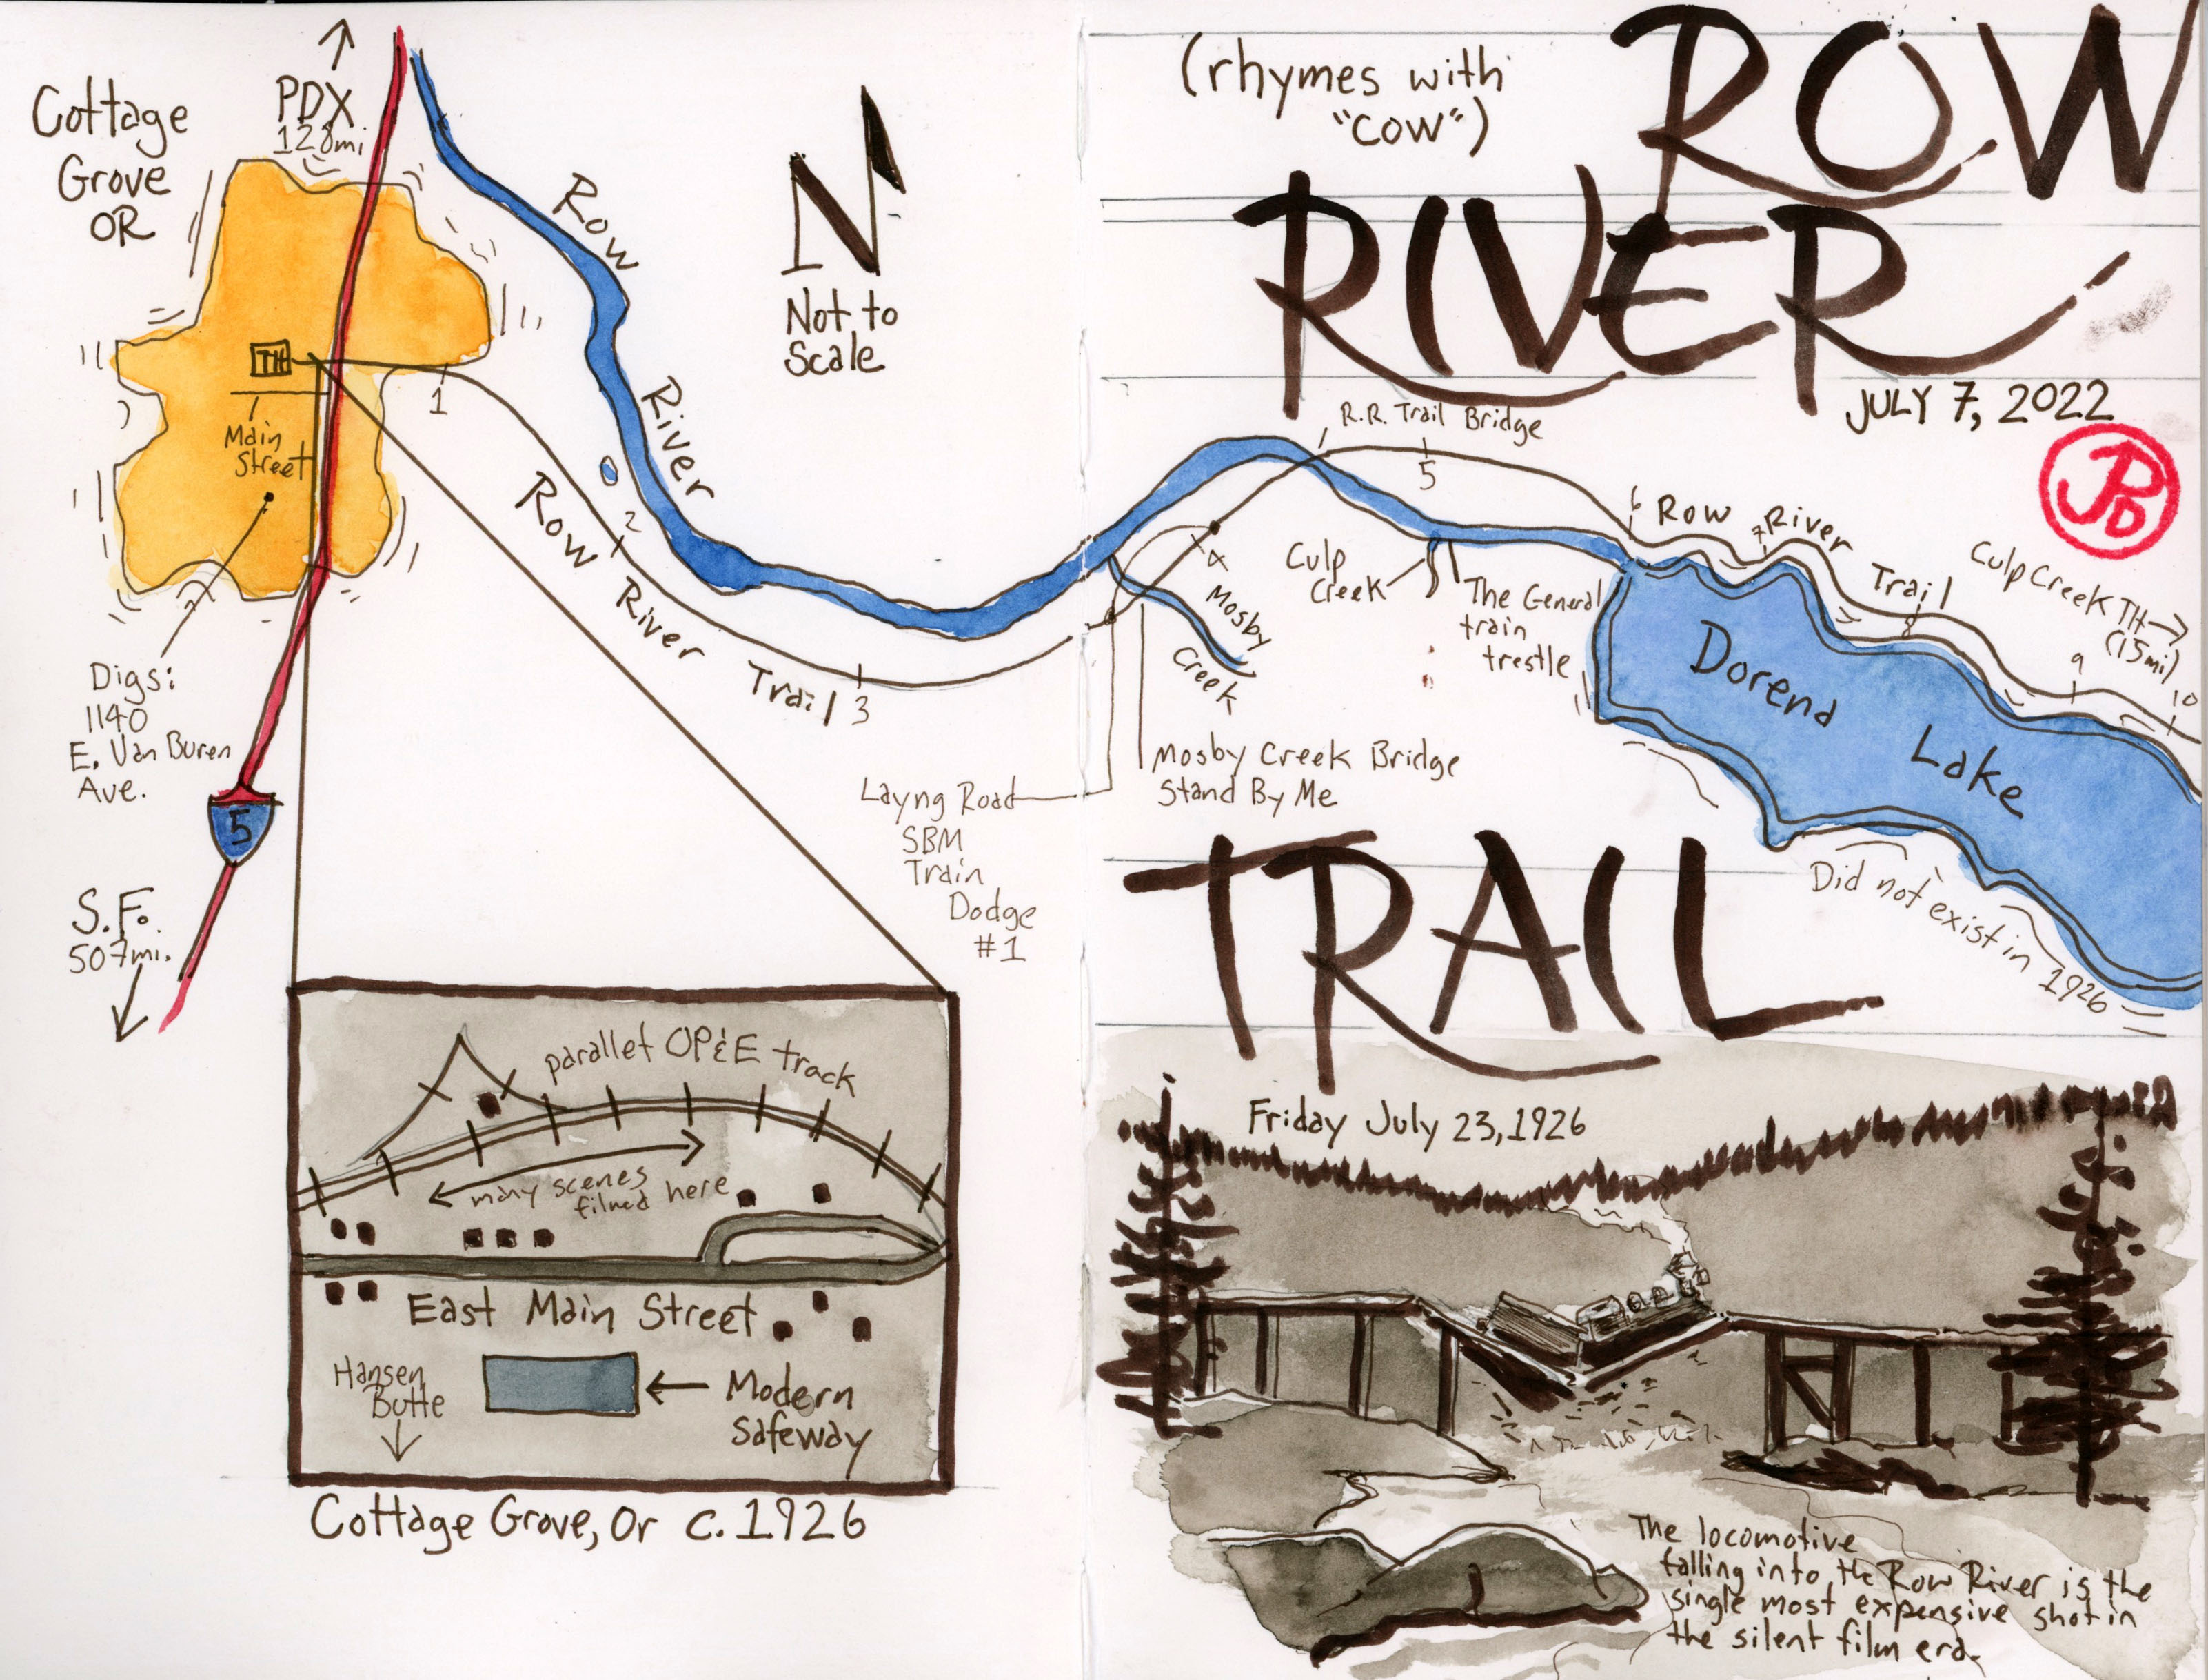 Cottage
Grove
OR
PDX
128mi
Row
River
N
Not to
Scale
TH
Main
Street
1
2
3
Row River Trail
Digs:
1140
E. Van Buren
Ave.
5
S.F.
507mi.
Layng Road
SBM
Train
Dodge
#1
parallel OP&E track
many scenes
filmed here
East Main Street
Hansen
Butte
Modern
Safeway
Cottage Grove, Or c. 1926
(rhymes with
"COW")
ROW
RIVER
JULY 7, 2022
JPD
R.R. Trail Bridge
4
5
6
7
8
9
10
Row River Trail
Culp Creek TH
(15mi)
Mosby
Creek
Culp
Creek
The General
train
trestle
Dorena Lake
Mosby Creek Bridge
Stand By Me
Did not exist in 1926
TRAIL
Friday July 23, 1926
The locomotive
falling into the Row River is the
single most expensive shot in
the silent film era.